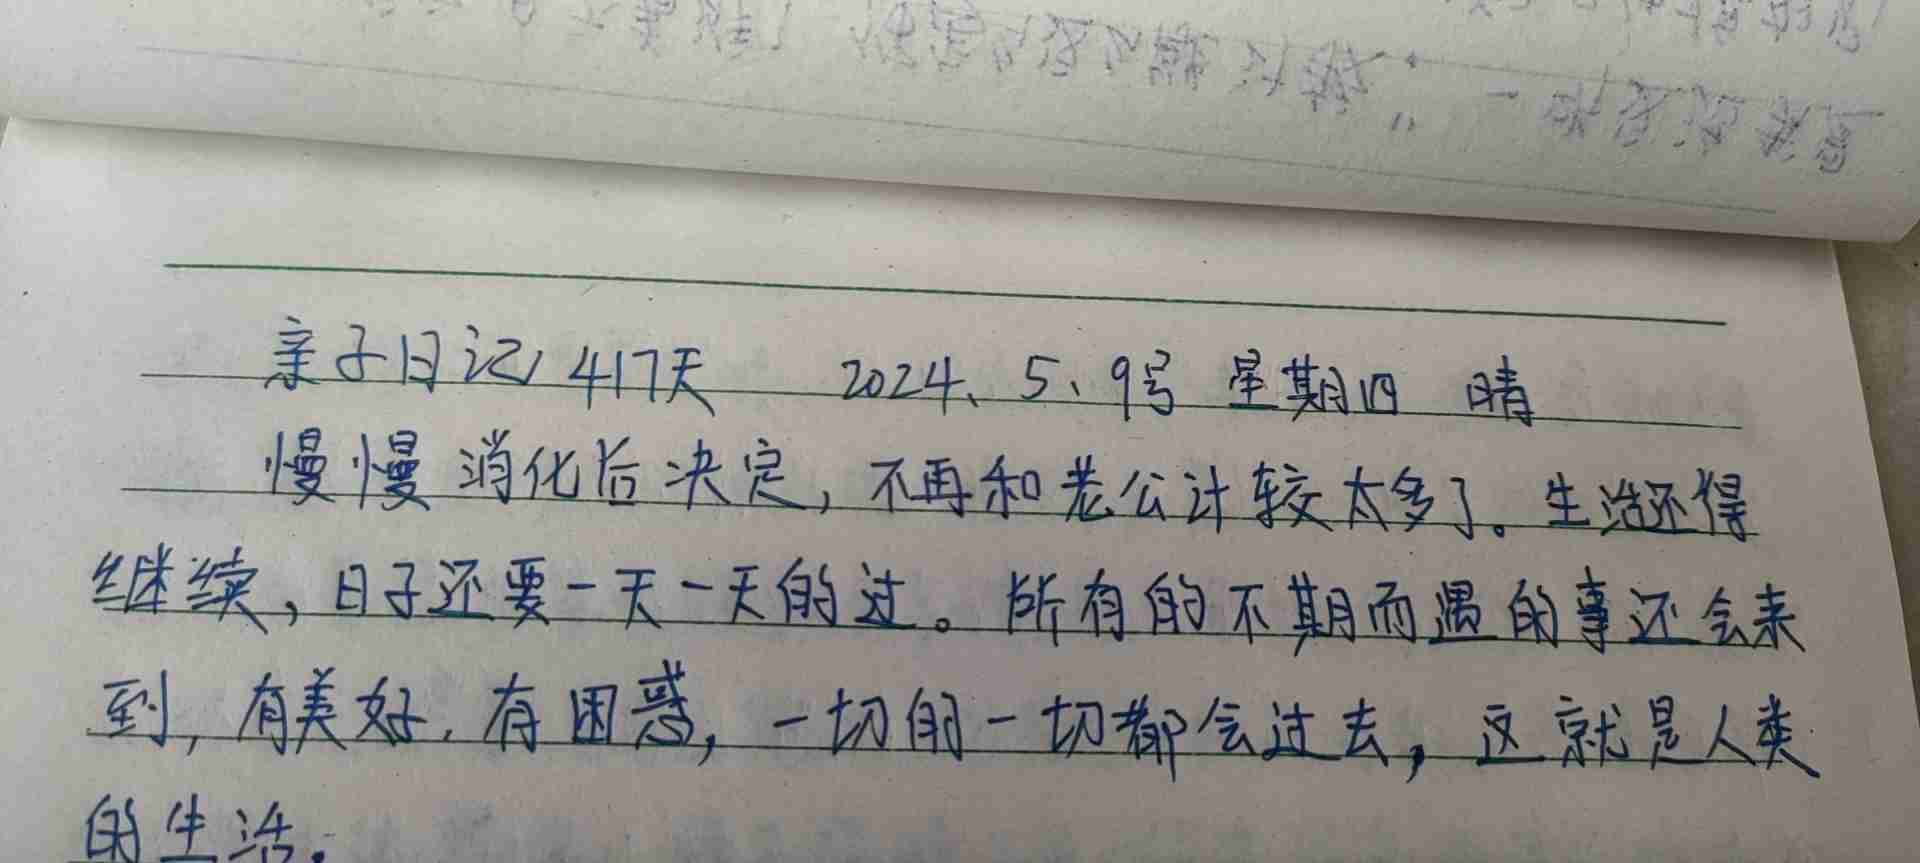 亲子日记417天 2024、5、9号 星期四 晴
慢慢消化后决定,不再和老公计较太多了。生活还得
继续,日子还要一天一天的过。所有的不期而遇的事还会来
到,有美好,有困惑,一切的一切都会过去,这就是人类
的生活。